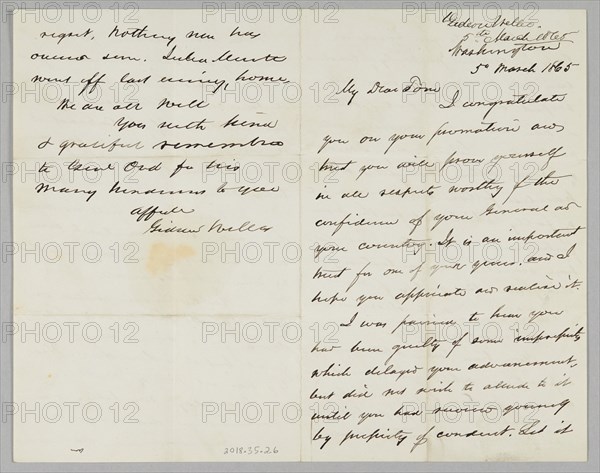 Gideon Welles.
5th March 1865
Washington
5th March 1865
My Dear Tom
I congratulate
you on your promotion and
trust you will prove yourself
in all respects worthy of the
confidence of your General and
your country. It is an important
trust for one of your years, and I
hope you appreciate and realize it.
I was pained to hear you
had been guilty of some impropriety
which delayed your advancement,
but did not wish to allude to it
until you had
by propriety of conduct. Let it
regret. Nothing new has
went off last evening, home
We are all well
You with kind
& grateful remembrance
to Genl Ord for his
many kindnesses to you
Affcte
Gideon Welles
2018.35.26
PHOTO 12